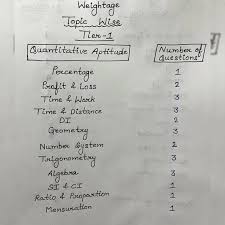 Weightage
Topic Wise
Tier-1
Quantitative Aptitude Number of Questions
Percentage 1
Profit & Loss 2
Time & Work 3
Time & Distance 3
DI 2
Geometry 3
Number System 2
Trigonometry 3
Algebra 3
SI & CI 1
Ratio & Proportion 1
Mensuration 1